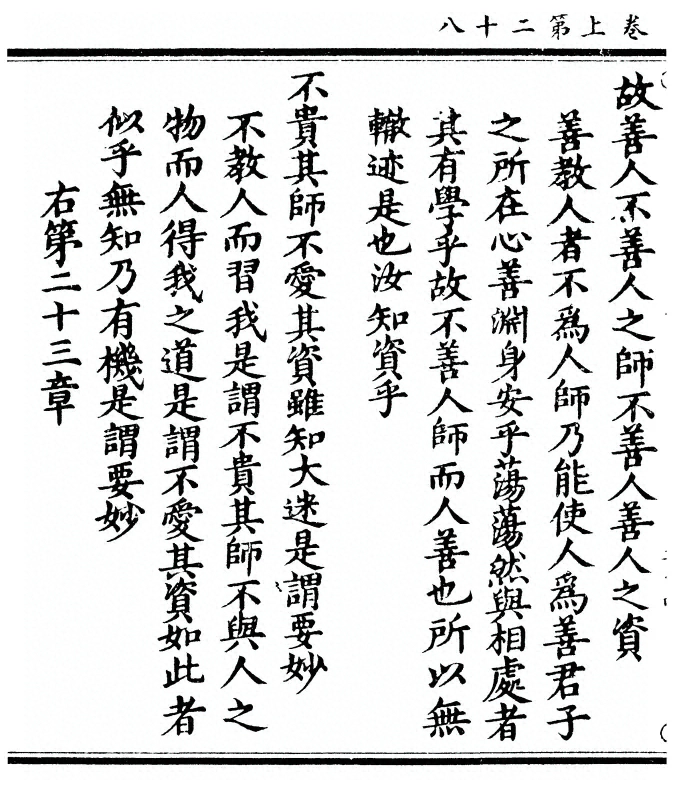 卷上第二十八
故善人不善人之師不善人善人之資
善教人者不爲人師乃能使人爲善君子
之所在心善淵身安乎蕩蕩然與相處者
其有學乎故不善人師而人善也所以無
轍迹是也汝知資乎
不貴其師不愛其資雖知大迷是謂要妙
不教人而習我是謂不貴其師不與人之
物而人得我之道是謂不愛其資如此者
似乎無知乃有機是謂要妙
右第二十三章